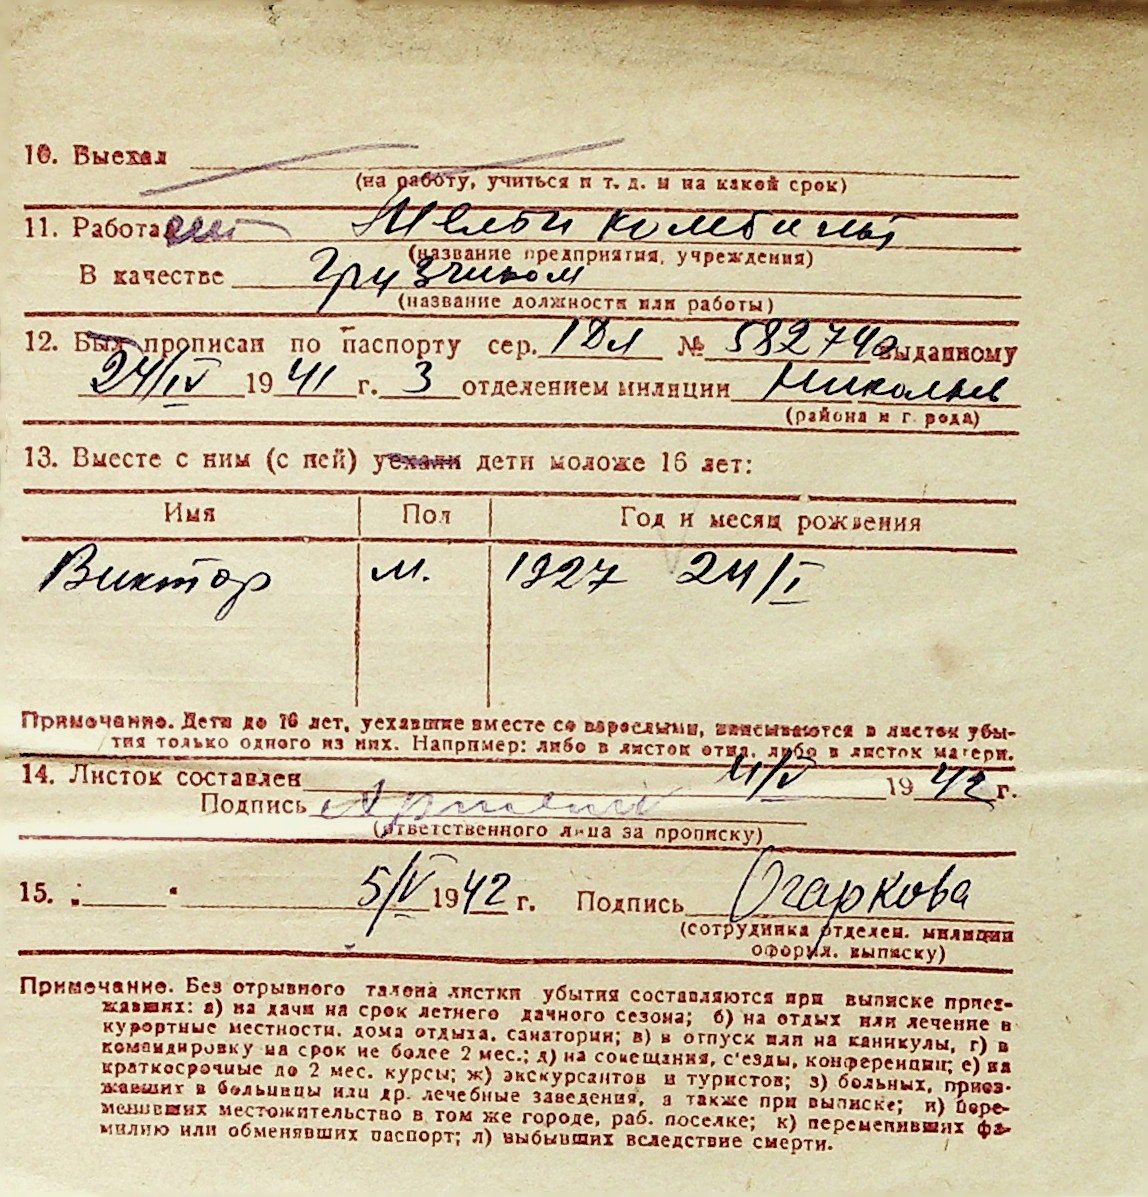 10. Выехал
(на работу, учиться и т. д. и на какой срок)
11. Работает комбинат
(название предприятия, учреждения)
В качестве грузчиком
(название должности или работы)
12. Был прописан по паспорту сер. № 582740 выданному
24/IV 1941 г. 3 отделением милиции Николаев
(района и города)
13. Вместе с ним (с ней) уехали дети моложе 16 лет:
Имя Пол Год и месяц рождения
Виктор м. 1927 24/I
Примечание. Дети до 16 лет, уехавшие вместе со взрослыми, вписываются в листок убы-
тия только одного из них. Например: либо в листок отца, либо в листок матери.
14. Листок составлен 4/V 1942 г.
Подпись
(ответственного лица за прописку)
15. 5/V 1942 г. Подпись Огаркова
(сотрудника отделен. милиции
оформ. выписку)
Примечание. Без отрывного талона листки убытия составляются при выписке приез-
жавших: а) на дачи на срок летнего дачного сезона; б) на отдых или лечение в
курортные местности, дома отдыха, санатории; в) в отпуск или на каникулы, г) в
командировку на срок не более 2 мес.; д) на совещания, с'езды, конференции; е) на
краткосрочные до 2 мес. курсы; ж) экскурсантов и туристов; з) больных, приез-
жавших в больницы или др. лечебные заведения, а также при выписке; и) пере-
менивших местожительство в том же городе, раб. поселке; к) переменивших фа-
милию или обменявших паспорт; л) выбывших вследствие смерти.